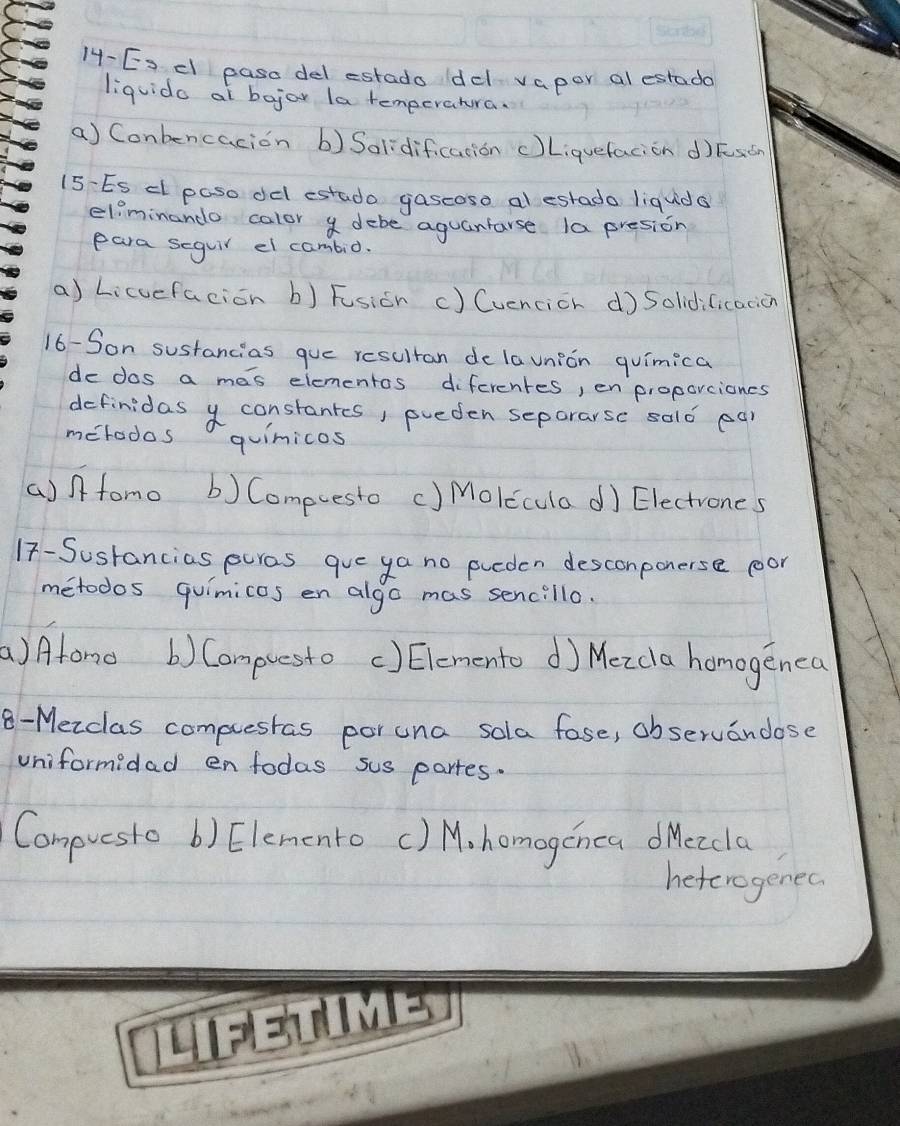 Scribe
14-Es el paso del estado del vapor al estado
liquido al bajar la temperatura.
a) Conbencación b) Solidificación c) Liquefación d) Fusión
15-Es el paso del estado gaseoso al estado liquido
eliminando calor y debe aguantarse la presión
para seguir el cambio.
a) Licuefación b) Fusión c) Cuención d) Solidificación
16-Son sustancias que resultan de la unión química
de dos a más elementos diferentes, en proporciones
definidas y constantes, pueden separarse soló por
métodos químicos
a) Átomo b) Compuesto c) Molécula d) Electrones
17-Sustancias puras que ya no pueden desconponerse por
métodos químicos en algo mas sencillo.
a) Átomo b) Compuesto c) Elemento d) Mezcla homogénea
8-Mezclas compuestas por una sola fase, observándose
uniformidad en todas sus partes.
) Compuesto b) Elemento c) M. homogénea d Mezcla
heterogénea
LIFETIME